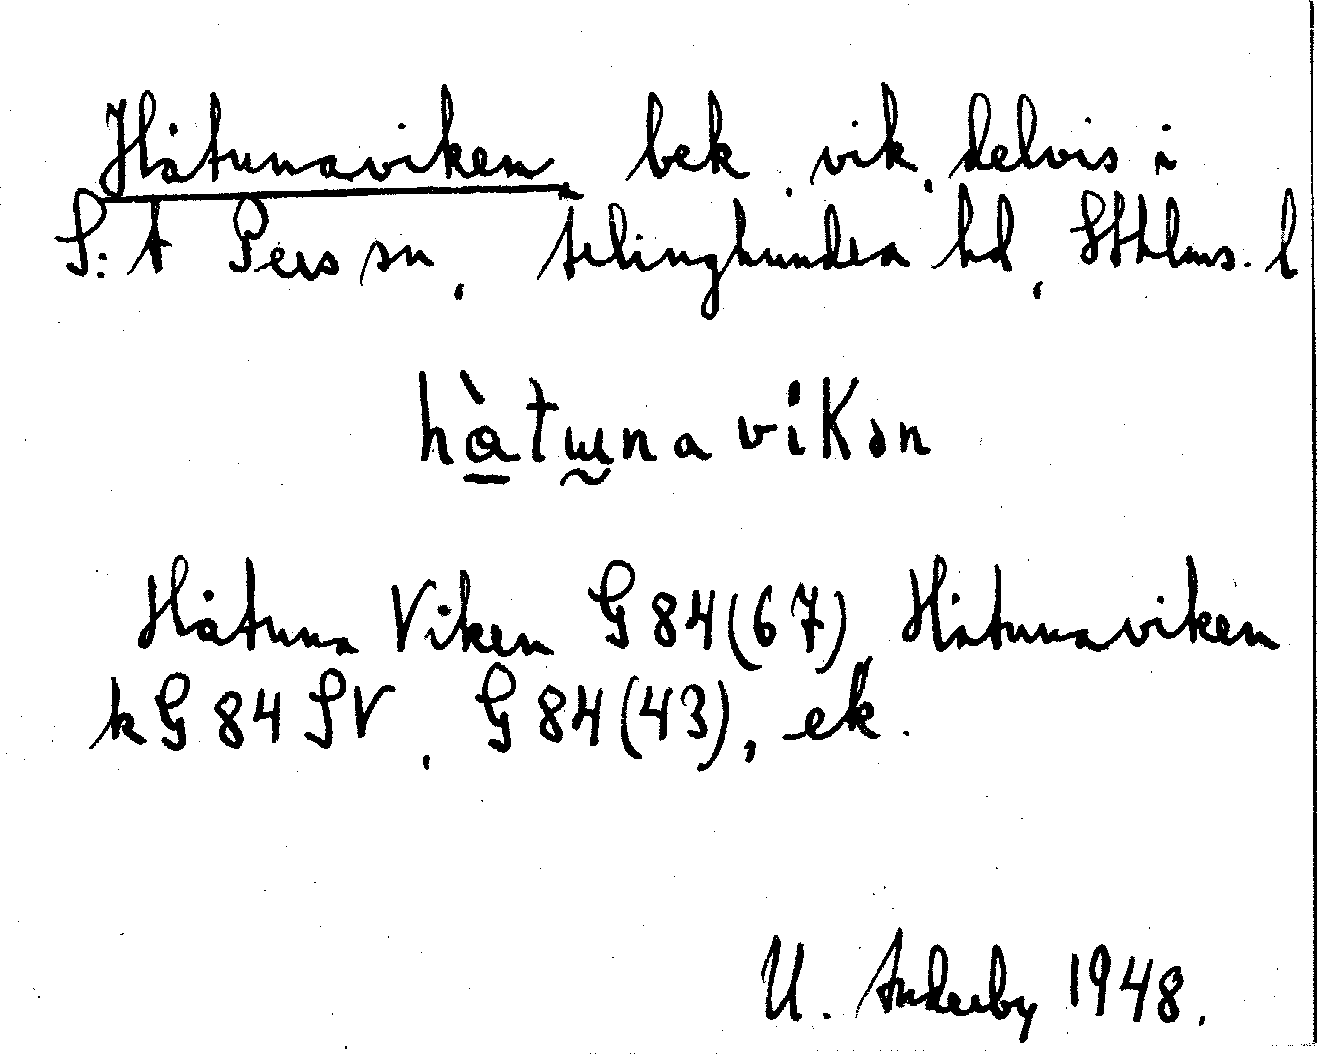 Håtunaviken bek. vik, delvis i
S:t Pers sn, Ärlinghundra hd, Sthlms. l
hàtɯnavikən
Håtuna Viken G 84 (67), Håtunaviken
k G 84 SV, G 84 (43), ek.
U. 1948.